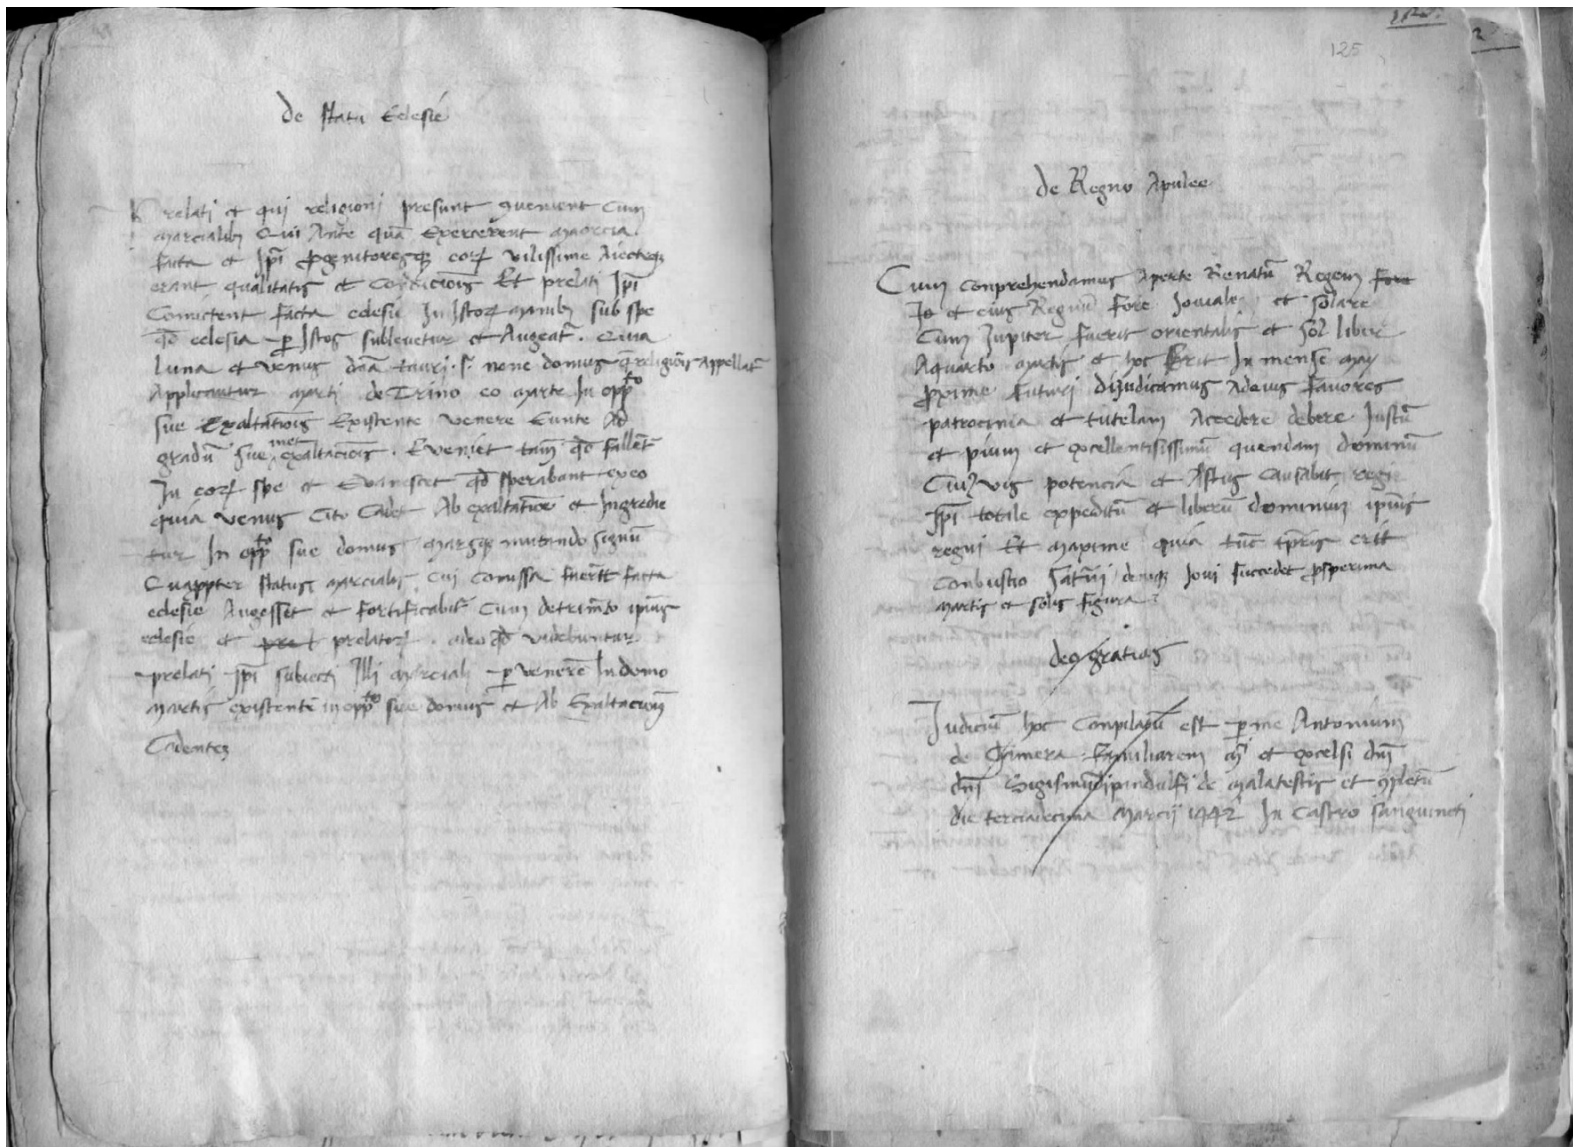 de statu Eclesie
Prelati et qui religioni presunt 9venient Cum
marcialib3 Qui Ante quã Exercerent maorcia
facta et Ipĩ ꝓgenitoresq3 eoꝝ vilissime Aiecteq3
erant qualitatis et Condicioĩs Et prelati Ipĩ
Comictent facta eclesie In Istoꝝ manib3 sub spe
qđ eclesia ꝑ Istos sublevetur et Augeat᷑. Quia
luna et venus dña tauri .s. none domus q̃ religiõis Appellat᷑
Applicantur marti de Trino eo marte In opp̃to
sue Exaltatiõis Existente venere Eunte Ad
gradũ sue met exaltacioĩs. Eveniet tam̃ qđ fallet᷑
In eoꝝ spe et Evanescet qđ sperabant ex eo
quia venus Cito Cadet Ab exaltatiõe et Ingredie
tur In opp̃to sue domus marsq3 mutando signũ
Quappter status marcialis Cui Comissa fuerĩt facta
eclesie Augesset et fortificabit᷑ Cum detrim̃to ipĩus
eclesie et pre prelatoꝝ. adeo qđ videbuntur
prelati Ipĩ subiecti Illi marciali ꝑ venerẽ In domo
martis existentẽ in opp̃to sue domus et Ab Exaltaciõn
Cadentez
125
de Regno Apulee
Cum conprehendamus Aperte Renatũ Regem fore
et eius Regnũ fore Joviale et solare
Cum Jupiter fuerit orientalis et sol liber
A quarto martis et hoc Erit In mense maij
ꝓxime futuri dijudicamus Ad eius favores
patrocinia et tutelam Accedere debere Justũ
et pium et excellentisissimũ quendam dominũ
Cuiꝰ vis potencia et Astus Causabit regi
Ipĩ totale expeditũ et liberũ dominiuz ipĩus
regni Et maxime quia tũc erit
Conbustio satĩni denuq3 Jovi succedet ꝓsperima
martis et solis figura
deo gratias
Judiciũ hoc Conpilatũ est ꝑ me Antonium
de Chimera familiarem mᶜⁱ et excelsi dñi
dñi Sigismũdi pandulfi de malatestis et 9pletũ
die terciadecima marcij 1442 In Castro sanguineti